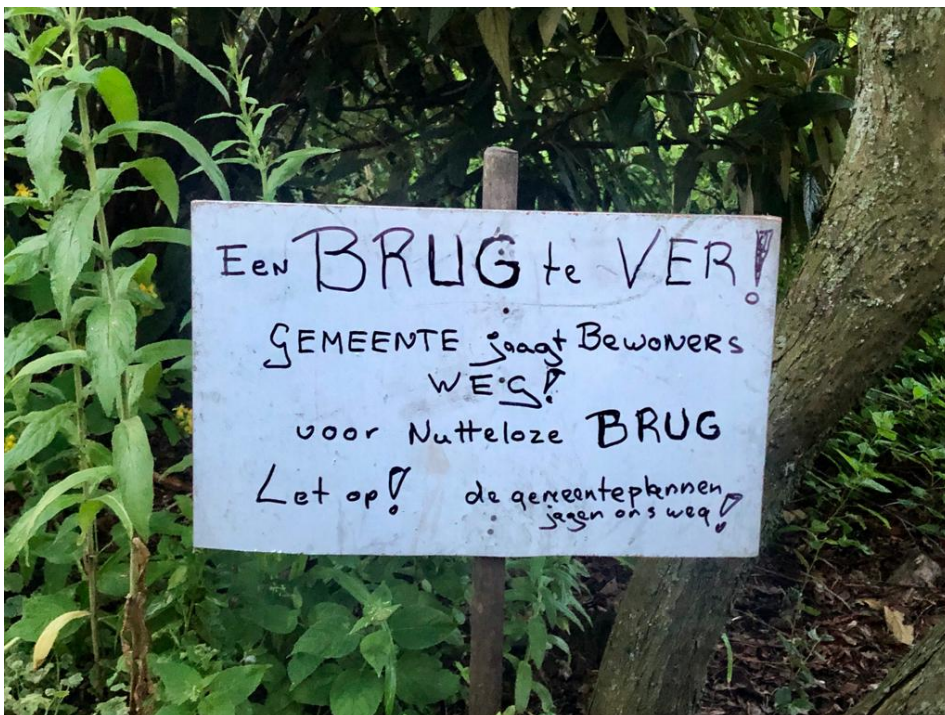 Een BRUG te VER!
GEMEENTE jaagt Bewoners
WEG!
voor Nutteloze BRUG
Let op! de gemeenteplannen
jagen ons weg!